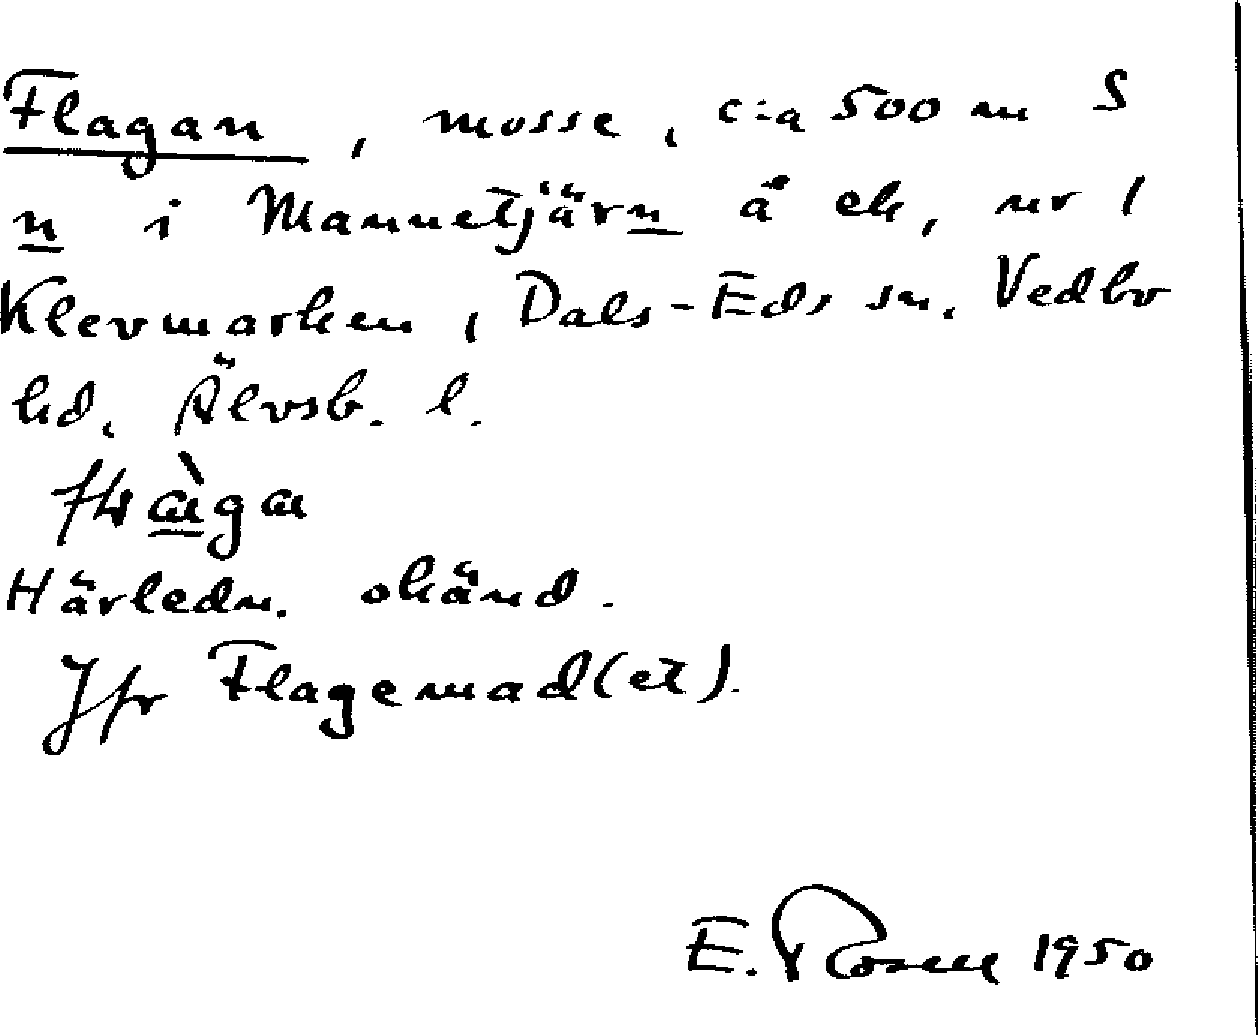 Flagan, mosse, c:a 500 m S
n i Mannetjärn å ek, nr 1
Klevmarken, Dals-Eds sn. Vedbo
hd. Älvsb. l.
Härledn. okänd.
Jfr Flagemad(et).
E. Rosell 1950